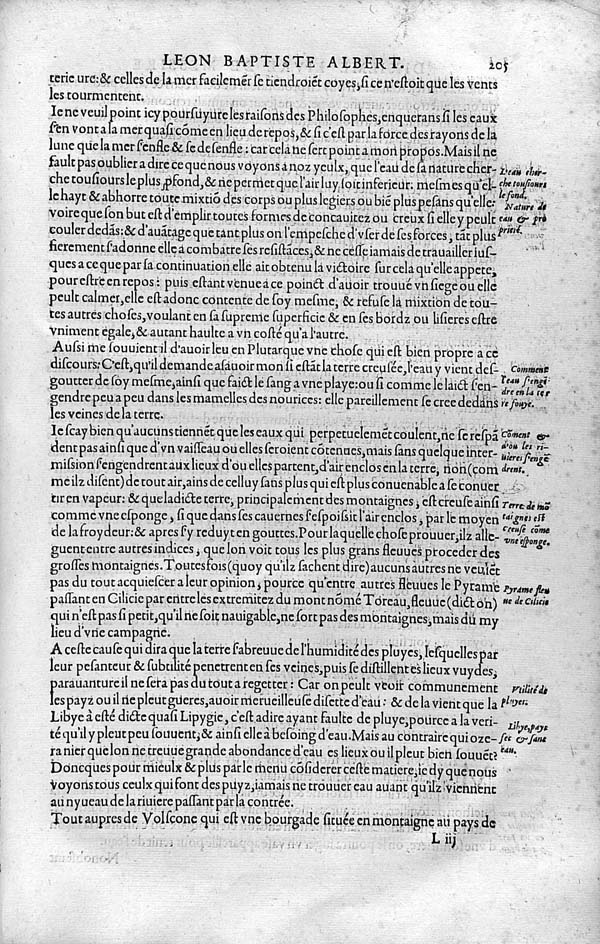 LEON BAPTISTE ALBERT. 205
terieure: & celles de la mer facilemẽt se tiendroiẽt coyes, si ce n'estoit que les vents
les tourmentent.
Ie ne veuil point icy poursuyure les raisons des Philosophes, enquerans si les eaux
s'en vont a la mer quasi cõme en lieu de repos, & si c'est par la force des rayons de la
lune que la mer s'enfle & se desenfle: car cela ne sert point a mon propos. Mais il ne
fault pas oublier a dire ce que nous voyons a noz yeulx, que l'eau de sa nature cher-
che tousiours le plus ꝓfond, & ne permet que l'air luy soit inferieur: mesmes qu'el-
le hayt & abhorre toute mixtiõ des corps ou plus legiers ou biẽ plus pesans qu'elle:
voire que son but est d'emplir toutes formes de concauitez ou creux si elle y peult
couler dedãs: & d'auãtage que tant plus on l'empesche d'vser de ses forces, tãt plus
fierement s'adonne elle a combatre ses resistãces, & ne cesse iamais de trauailler ius-
ques a ce que par sa continuation elle ait obtenu la victoire sur cela qu'elle appete,
pour estre en repos: puis estant venue a ce poinct d'auoir trouué vn siege ou elle
peult calmer, elle est adonc contente de soy mesme, & refuse la mixtion de tou-
tes autres choses, voulant en sa supreme superficie & en ses bordz ou lisieres estre
vniment egale, & autant haulte a vn costé qu'a l'autre.
L'eau cher-
che tousiours
le fond.
Nature de
eau & pro
prieté.
Aussi me souuient il d'auoir leu en Plutarque vne chose qui est bien propre a ce
discours: C'est, qu'il demande asauoir mon si estãt la terre creusée, l'eau y vient des-
goutter de soy mesme, ainsi que faict le sang a vne playe: ou si comme le laict s'en-
gendre peu a peu dans les mamelles des nourices: elle pareillement se cree dedans
les veines de la terre.
Comment
l'eau s'engẽ
dre en la ter
re fouye.
Ie scay bien qu'aucuns tiennẽt que les eaux qui perpetuelemẽt coulent, ne se respã
dent pas ainsi que d'vn vaisseau ou elles seroient cõtenues, mais sans quelque inter-
mission s'engendrent aux lieux d'ou elles partent, d'air enclos en la terre, non (com
me ilz disent) de tout air, ains de celluy sans plus qui est plus conuenable a se conuer
tir en vapeur: & que ladicte terre, principalement des montaignes, est creuse ainsi
comme vne esponge, si que dans ses cauernes s'espoissit l'air enclos, par le moyen
de la froydeur: & apres s'y reduyt en gouttes. Pour laquelle chose prouuer, ilz alle-
guent entre autres indices, que lon voit tous les plus grans fleuues proceder des
grosses montaignes. Toutesfois (quoy qu'ilz sachent dire) aucuns autres ne veulẽt
pas du tout acquiescer a leur opinion, pource qu'entre autres fleuues le Pyrame
passant en Cilicie par entre les extremitez du mont nõmé Toreau, fleuue (dict on)
qui n'est pas si petit, qu'il ne soit nauigable, ne sort pas des montaignes, mais du my
lieu d'vne campagne.
Cõment &
d'ou les ri-
uieres s'engẽ
drent.
Terre de mõ
taignes est
creuse cõme
vne esponge.
Pyrame fleu
ue de Cilicie
A ceste cause qui dira que la terre s'abreuue de l'humidité des pluyes, lesquelles par
leur pesanteur & subtilité penetrent en ses veines, puis se distillent es lieux vuydes,
parauanture il ne sera pas du tout a regetter: Car on peult veoir communement
les payz ou il ne pleut gueres, auoir merueilleuse disette d'eau: & de la vient que la
Libye à esté dicte quasi Lipygie, c'est adire ayant faulte de pluye, pource a la veri-
té qu'il y pleut peu souuent, & ainsi elle à besoing d'eau. Mais au contraire qui oze-
ra nier que lon ne treuue grande abondance d'eau es lieux ou il pleut bien souuẽt?
Vtilité de
pluyes.
Libye, pays
sec & sans
eau.
Doncques pour mieulx & plus par le menu cõsiderer ceste matiere, ie dy que nous
voyons tous ceulx qui font des puyz, iamais ne trouuer eau auant qu'ilz viennent
au nyueau de la riuiere passant par la contrée.
Tout aupres de Volsçone qui est vne bourgade située en montaigne au pays de
L iij